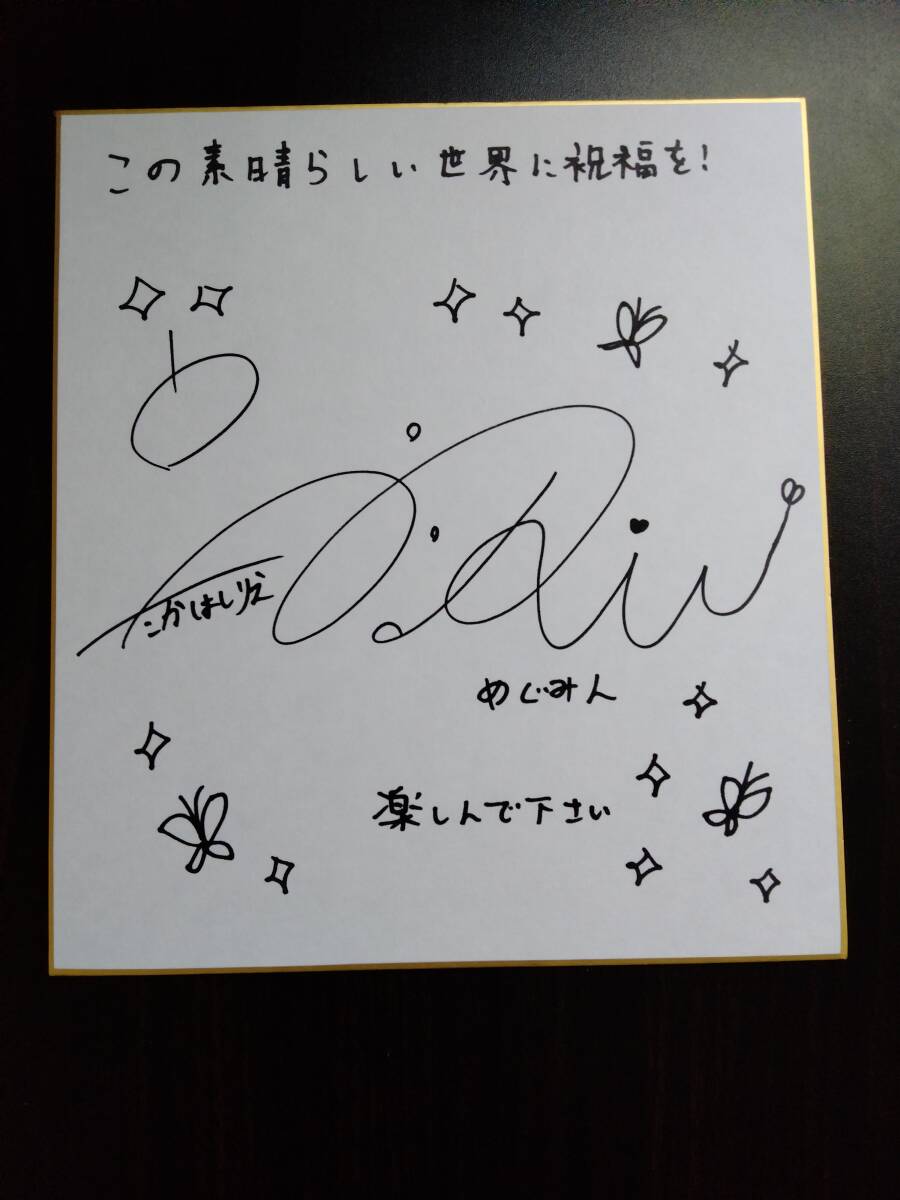 この素晴らしい世界に祝福を!
たかはしりえ
めぐみん
楽しんで下さい